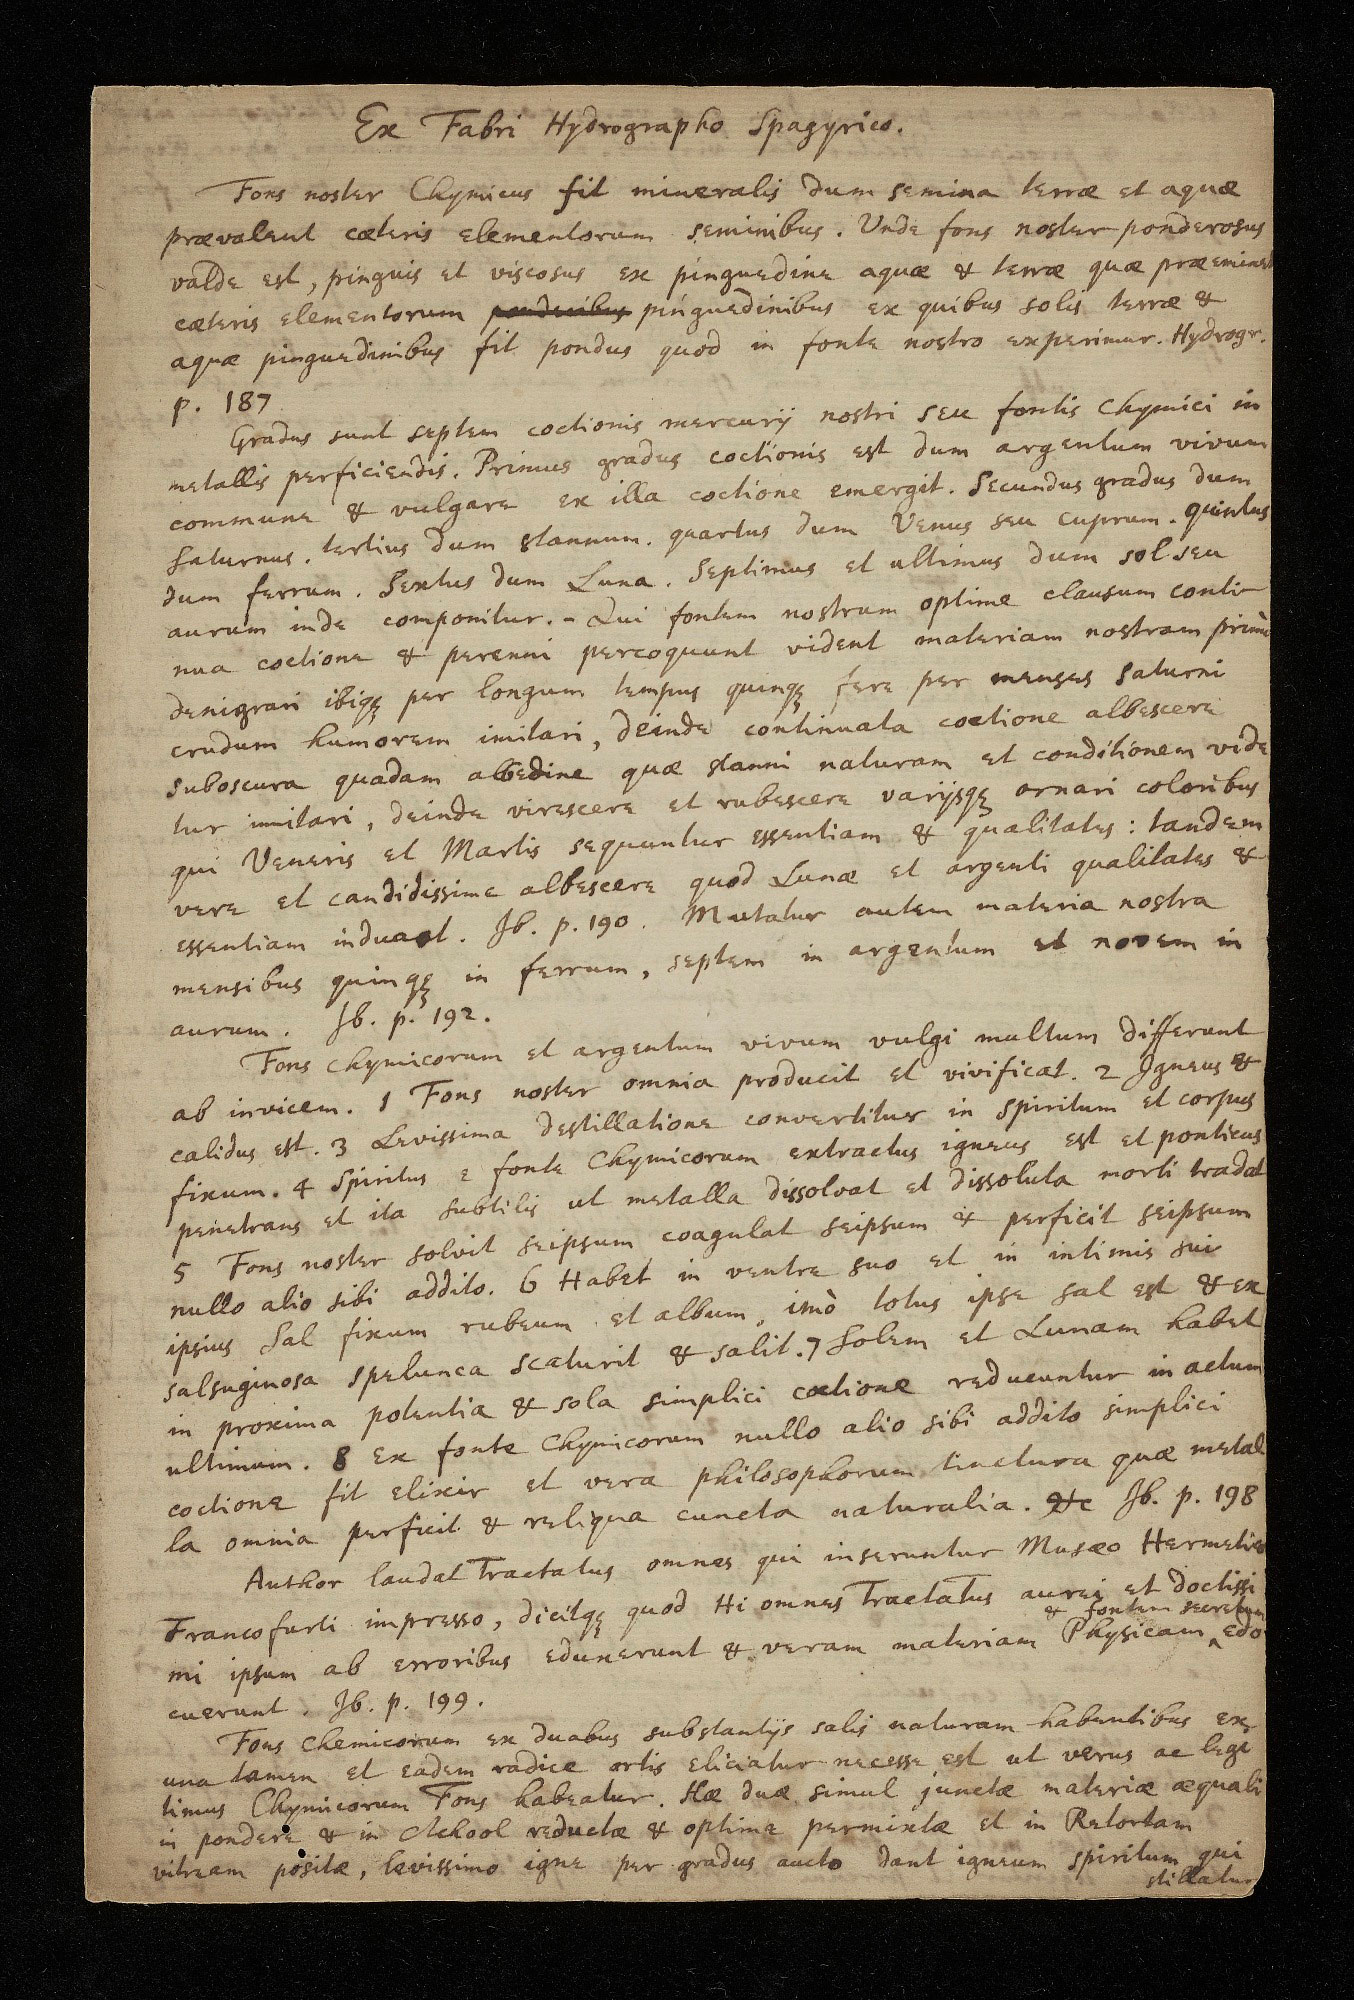 Ex Fabri Hydrographo Spagyrico.
Fons noster Chymicus fit mineralis dum semina terræ et aquæ
prævalent cæteris elementorum seminibus. Unde fons noster ponderosus
valde est, pinguis et viscosus ex pinguedine aquæ & terræ quæ præeminent
cæteris elementorum ponderibus pinguedinibus ex quibus solis terræ &
aquæ pinguedinibus fit pondus quod in fonte nostro experimur. Hydrogr.
p. 187
Gradus sunt septem coctionis mercurij nostri seu fontis Chymici in
metallis perficiendis. Primus gradus coctionis est dum argentum vivum
commune & vulgare ex illa coctione emergit. Secundus gradus dum
Saturnus. tertius dum stannum. quartus dum Venus seu cuprum. quintus
dum ferrum. Sextus dum Luna. Septimus et ultimus dum sol seu
aurum inde componitur. - Qui fontem nostrum optime clausum conti-
nua coctione & perenni percoquunt vident materiam nostram primò
denigrari ibiqꝫ per longum tempus quinqꝫ fere per menses Saturni
crudum humorem imitari, deinde continuata coctione albescere
suboscura quadam albedine quæ stanni naturam et conditionem vide
tur imitari, deinde virescere et rubescere varijsqꝫ ornari coloribus
qui Veneris et Martis sequuntur essentiam & qualitates: tandem
vere et candidissime albescere quod Lunæ et argenti qualitates &
essentiam induat. Ib. p. 190. Mutatur autem materia nostra
mensibus quinqꝫ in ferrum, septem in argentum et novem in
aurum. Ib. p. 192.
Fons chymicorum et argentum vivum vulgi multum differunt
ab invicem. 1 Fons noster omnia producit et vivificat. 2 Igneus &
calidus est. 3 Levissima destillatione convertitur in spiritum et corpus
fixum. 4 Spiritus e fonte Chymicorum extractus igneus est et ponticus
penetrans et ita subtilis ut metalla dissolvat et dissoluta morti tradat
5 Fons noster solvit seipsum coagulat seipsum & perficit seipsum
nullo alio sibi addito. 6 Habet in ventre suo et in intimis sui
ipsius Sal fixum rubeum et album, imò totus ipse sal est & ex
salsuginosa spelunca scaturit & salit. 7 Solem et Lunam habet
in proxima potentia & sola simplici coctione reducuntur in actum
ultimum. 8 Ex fonte Chymicorum nullo alio sibi addito simplici
coctione fit elixir et vera philosophorum tinctura quæ metal
la omnia perficit & reliqua cuncta naturalia. &c Ib. p. 198
Author laudat Tractatus omnes qui inseruntur Musæo Hermetico
Francofurti impresso, dicitqꝫ quod Hi omnes Tractatus aurei et doctissi
& fontem secretum
mi ipsum ab erroribus eduxerunt & veram materiam Physicam ‸ edo
cuerunt. Ib. p. 199.
Fons Chemicorum ex duabus substantijs salis naturam habentibus ex
una tamen et eadem radice ortis eliciatur necesse est ut verus ac legi
timus Chymicorum Fons habeatur. Hæ duæ simul junctæ materiæ æquali
in pondere & in Alkool reductæ & optime permixtæ et in Retortam
vitream positæ, levissimo igne per gradus aucto dant igneum spiritum qui
stillatur